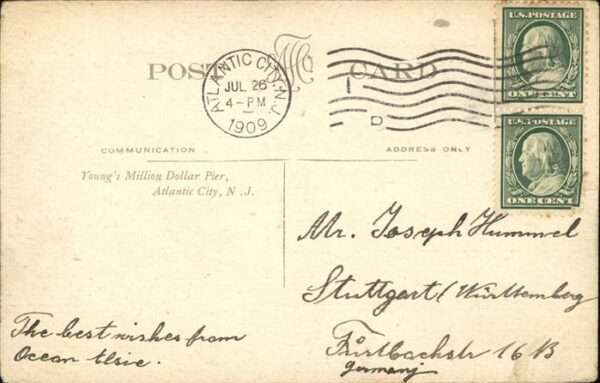 U.S. POSTAGE
ONE CENT
U.S. POSTAGE
ONE CENT
POST CARD
ATLANTIC CITY, N.J.
JUL 26
4-PM
1909
D
COMMUNICATION
ADDRESS ONLY
Young's Million Dollar Pier,
Atlantic City, N.J.
Mr. Joseph Hummel
Stuttgart/Württemberg
Fürtbachstr 16 B
Germany
The best wishes from
Ocean Elsie.